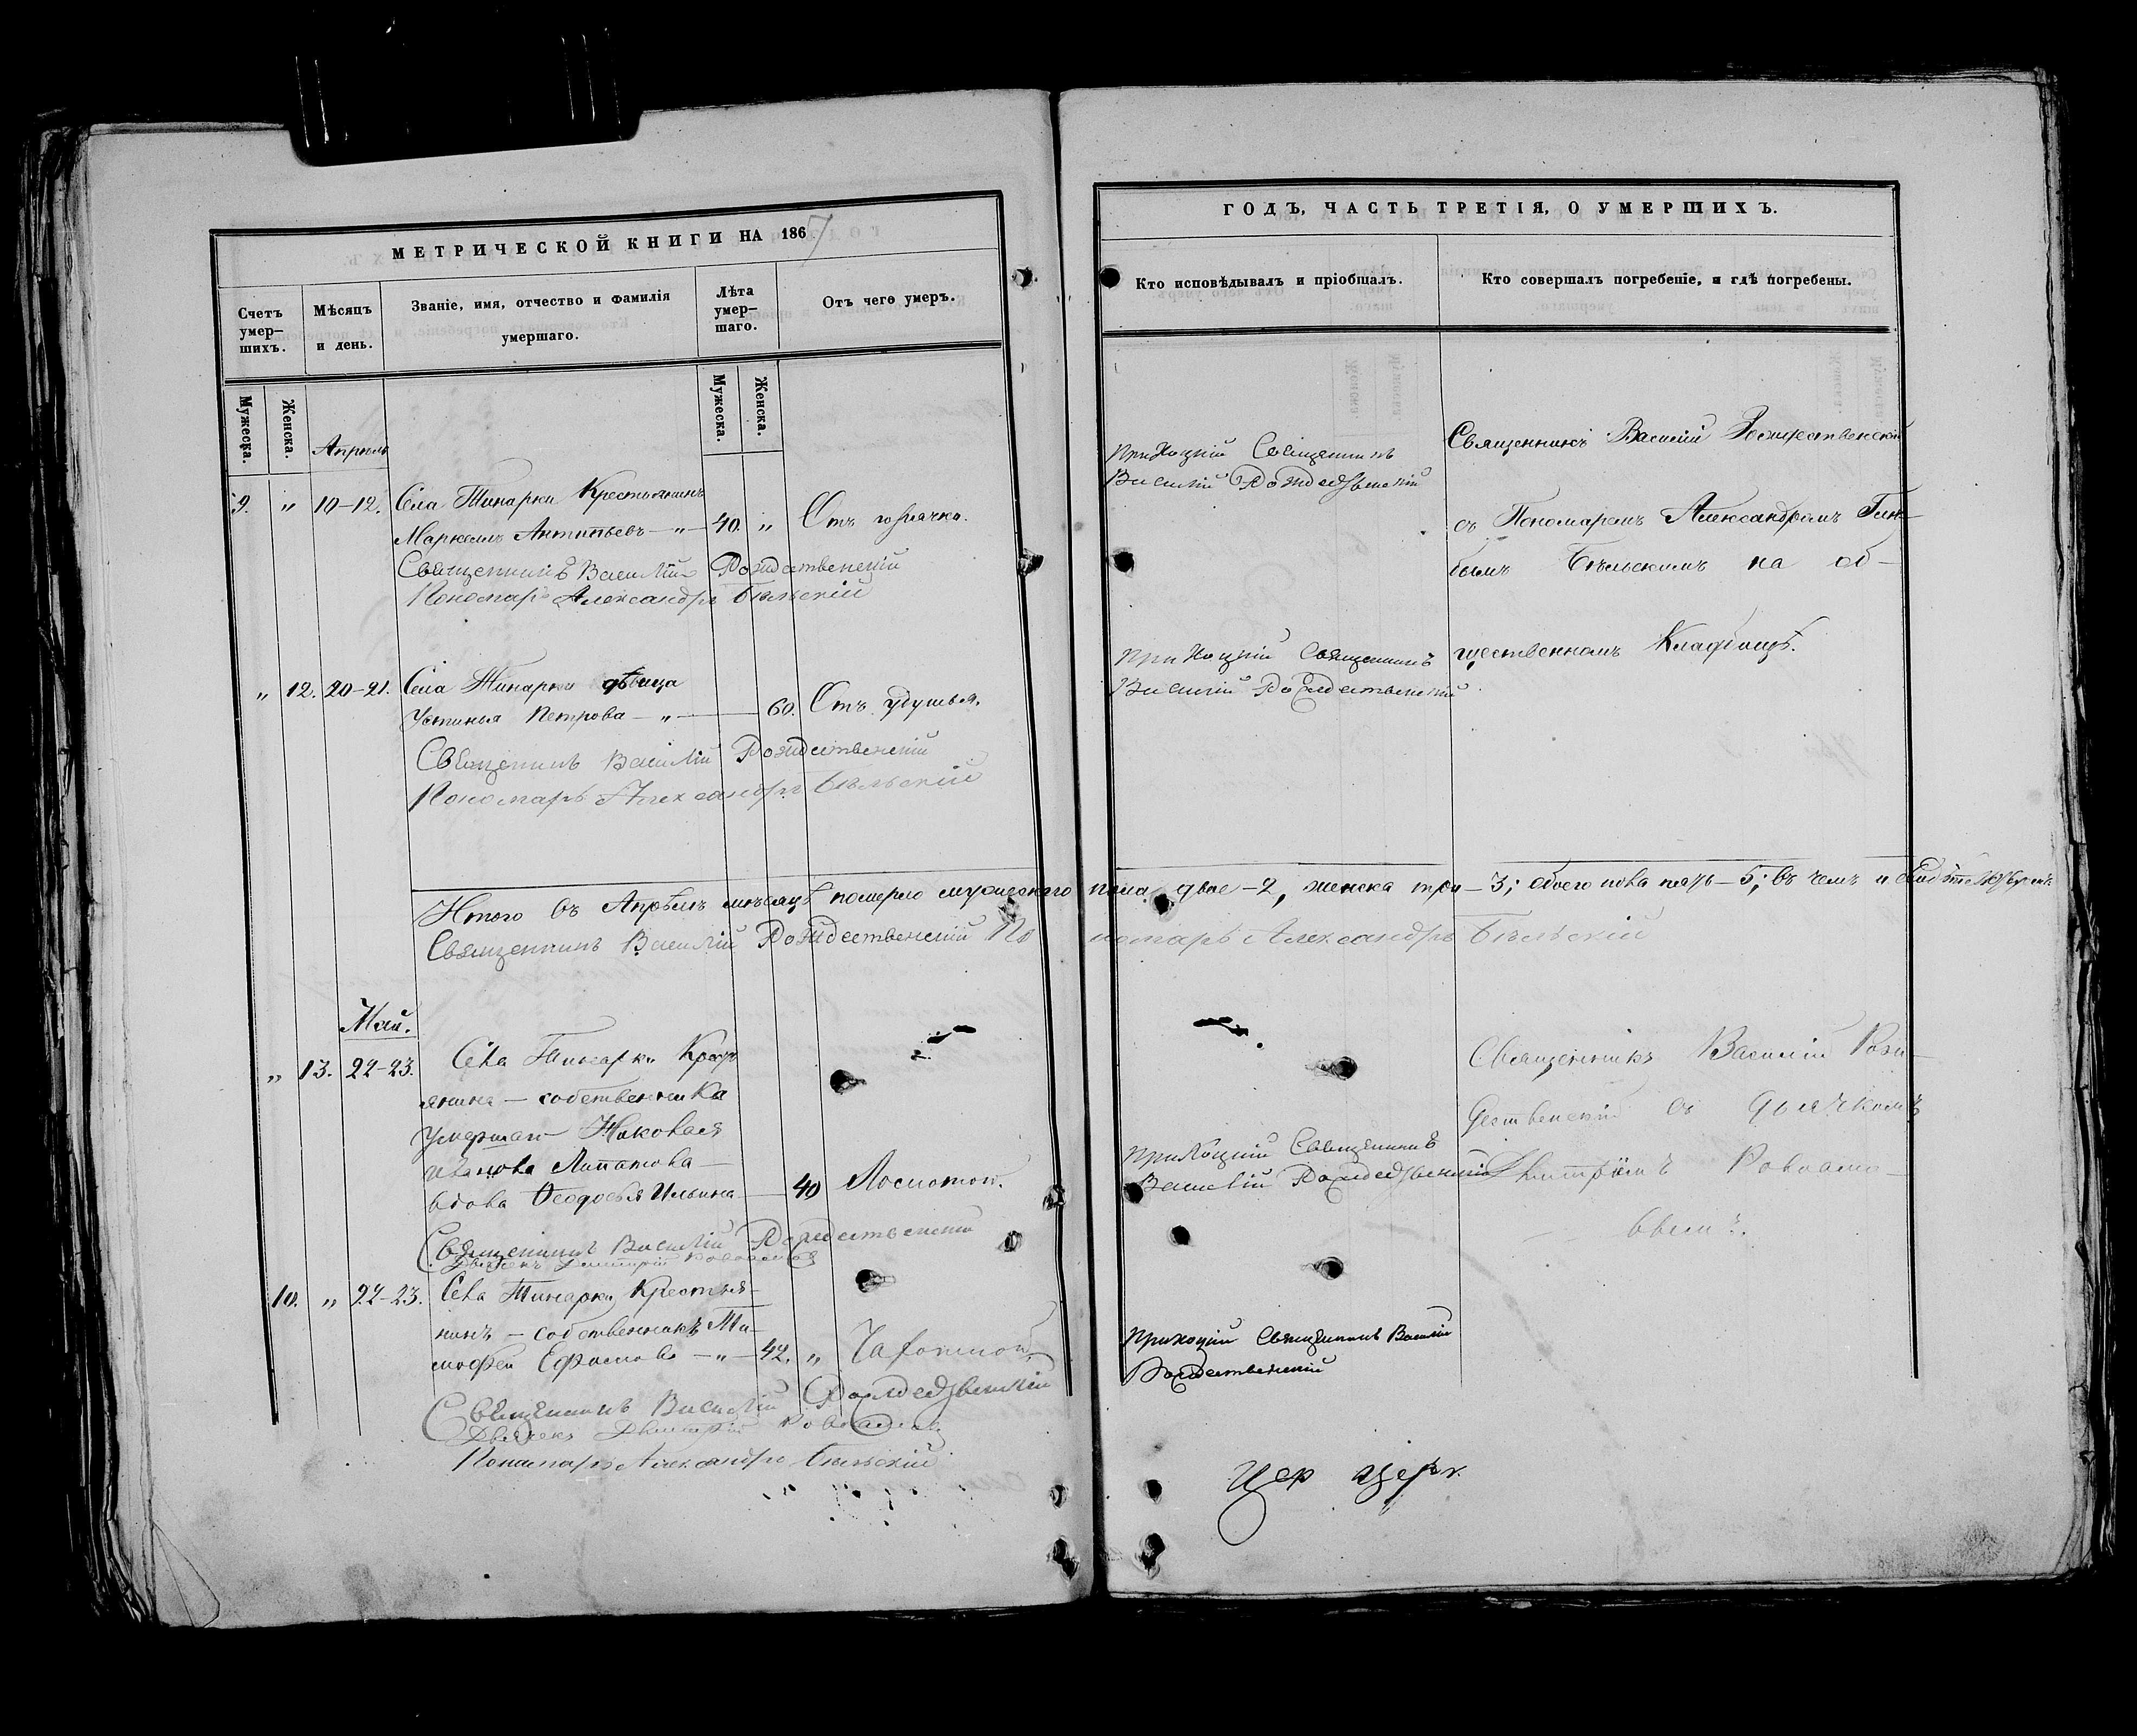 МЕТРИЧЕСКОЙ КНИГИ НА 1867
Счетъ умер-шихъ.
Мѣсяцъ и день.
Званіе, имя, отчество и фамилія умершаго.
Лѣта умер-шаго.
Отъ чего умеръ.
Мужеска.
Женска.
Мужеска.
Женска.
Апрѣль
9. „ 10-12. Села Тинарки Крестьянинъ
Маркеллъ Антипьевъ — „ — 40. „ Отъ горячки.
Священникъ Василій Рождественскій
Пономарь Александръ Бѣльскій
„ 12. 20-21. Села Тинарки дѣвица
Устинья Петрова — „ — 60. Отъ удушья.
Священникъ Василій Рождественскій
Пономарь Александръ Бѣльскій
Итого въ Апрѣлѣ мѣсяцѣ померло мужескаго пола двое – 2, женска три – 3; обоего пола пять – 5; въ чемъ и свидѣтельствуемъ
Священникъ Василій Рождественскій Пономарь Александръ Бѣльскій
Май.
„ 13. 22-23. Села Тинарки Крест
янина — собственника
умершаго Іаковлева
вдова Ѳеодосья Ильина — 40
Священникъ Василій Рождественскій
Дьячекъ Димитрій
10. „ 22-23. Села Тинарки Крестья-
нинъ — собственникъ Ти-
мофей Ефимовъ — „ — 42. „
Священникъ Василій Рождественскій
Дьячекъ Димитрій
Пономарь Александръ Бѣльскій
ГОДЪ, ЧАСТЬ ТРЕТІЯ, О УМЕРШИХЪ.
Кто исповѣдывалъ и пріобщалъ.
Кто совершалъ погребеніе, и гдѣ погребены.
Приходскій Священникъ
Василій Рождественскій
Священникъ Василій Рождественскій
съ Пономаремъ Александромъ
Бѣльскимъ на об-
щественномъ Кладбищѣ.
Приходскій Священникъ
Василій Рождественскій
Священникъ Василій Рож-
дественскій съ дьячкомъ
Димитріемъ
Приходскій Священникъ
Василій Рождественскій
Приходскій Священникъ Василій
Рождественскій